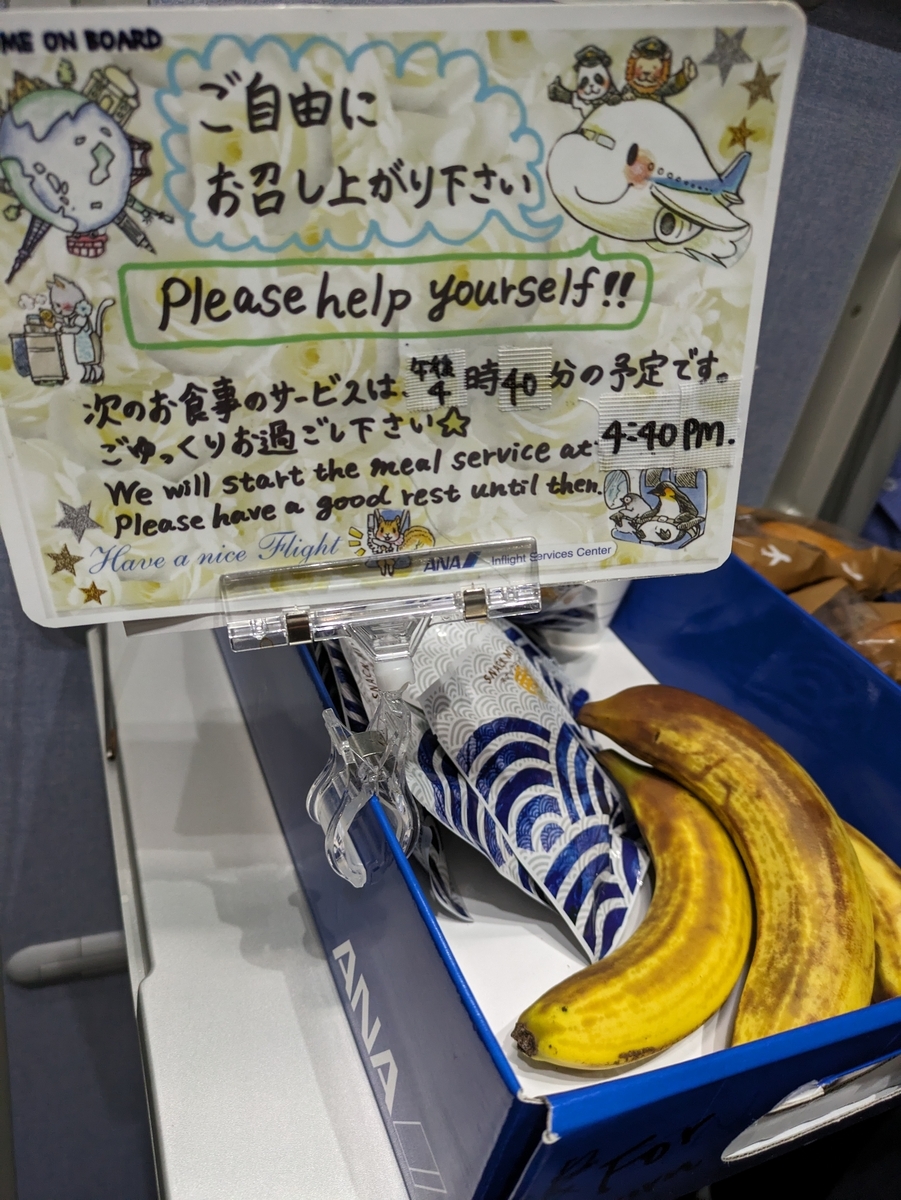 ME ON BOARD
ご自由に
お召し上がり下さい
Please help yourself!!
次のお食事のサービスは、午後4時40分の予定です。
ごゆっくりお過ごし下さい☆
We will start the meal service at 4:40 PM.
Please have a good rest until then.
Have a nice Flight
ANA Inflight Services Center
SNACK
SNACK
ANA
for